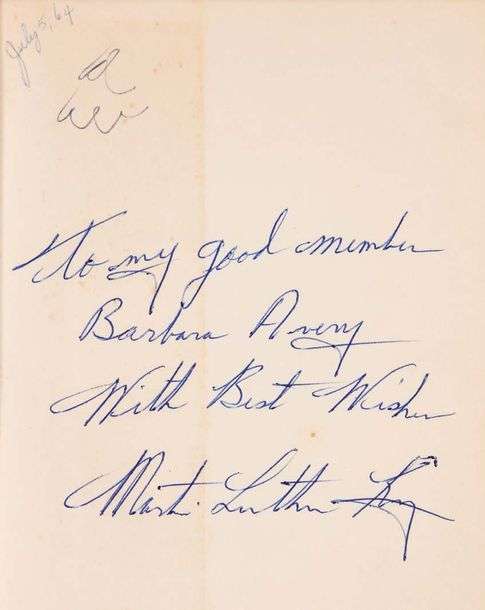 July 5, 64
to my good member
Barbara Avery
With Best Wishes
Martin Luther King